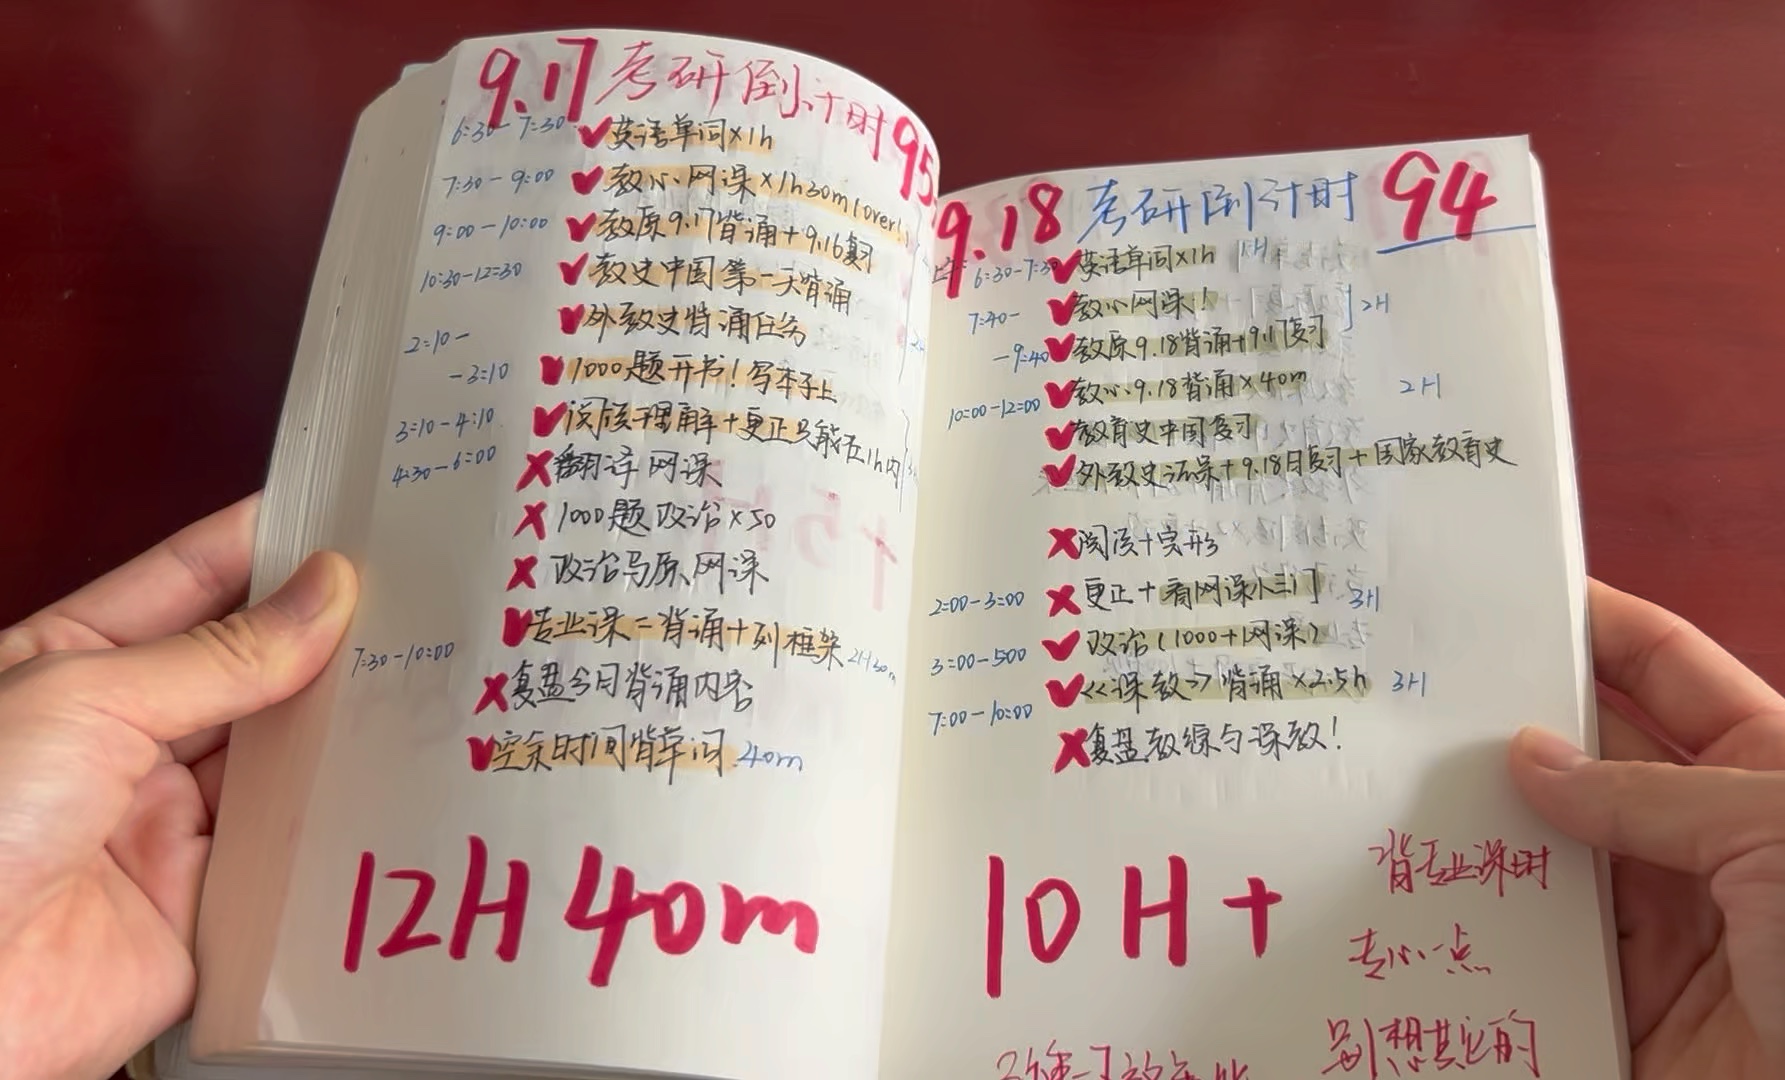 9.17 考研倒计时 95
6:30-7:30 ✓英语单词×1h
7:30-9:00 ✓教心网课×1h30m(over!)
9:00-10:00 ✓教原9.17背诵+9.16复习
10:30-12:30 ✓教史中国第一天背诵
✓外教史背诵任务
2:10-
-3:10 ✓1000题开书!写本子上
3:10-4:10 ✓阅读理解+更正只能在1h内
4:30-6:00 ✗翻译网课
✗1000题政治×50
✗政治马原网课
✓专业课二背诵+列框架 2H30m
7:30-10:00
✗复盘今日背诵内容
✓空余时间背单词 40m
12H40m
9.18 考研倒计时 94
6:30-7:30 ✓英语单词×1h 1H
7:40- ✓教心网课! 2H
-9:40 ✓教原9.18背诵+9.17复习
✓教心9.18背诵×40m 2H
10:00-12:00
✓教育史中国复习
✓外教史活课+9.18日复习+国家教育史
✗阅读+完形
2:00-3:00 ✗更正+看网课小三门 3H
3:00-500 ✓政治(1000+网课)
✓<<课教>>背诵×2.5h 3H
7:00-10:00
✗复盘教综与课教!
10H+
背专业课时
专心一点
别想其它的